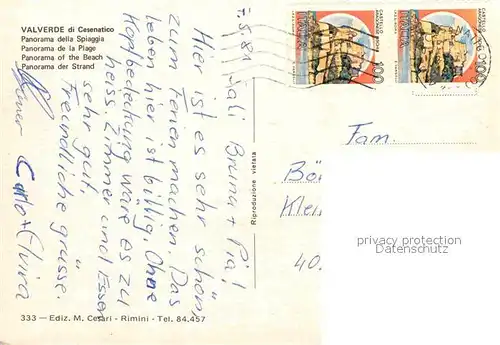 VALVERDE di Cesenatico
Panorama della Spiaggia
Panorama de la Plage
Panorama of the Beach
Panorama der Strand
7.5.81
Sali Bruna + Pia!
Hier ist es sehr schön,
zum Ferien machen. Das
leben hier ist billig. Ohne
Kopfbedeckung wäre es zu
heiss. Zimmer und Essen
sehr gut.
Freundliche grüsse.
Carlo + Elvira
Riproduzione vietata
333 — Ediz. M. Cesari - Rimini - Tel. 84.457
Fam.
Kle
40.
privacy protection
Datenschutz